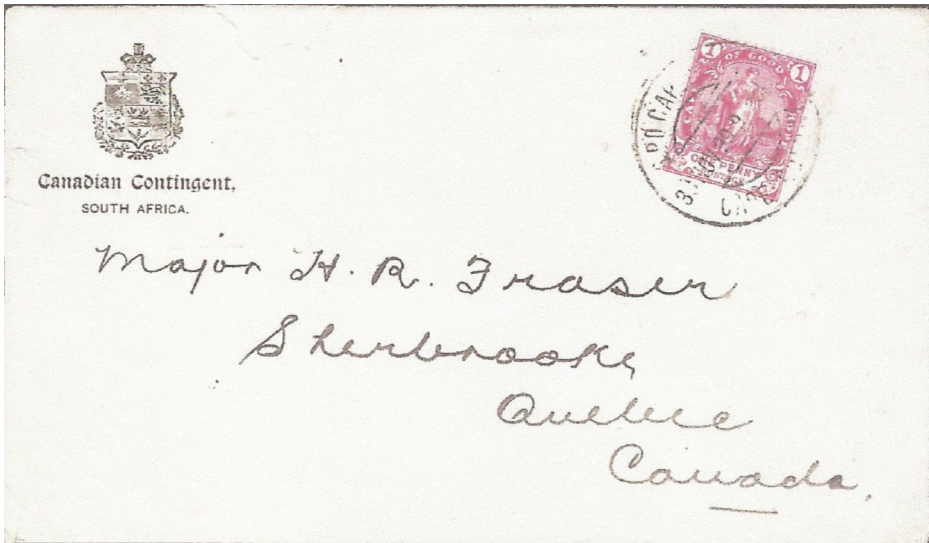 Canadian Contingent,
SOUTH AFRICA.
1 OF GOOD 1
ONE PENNY
POSTAGE
Major H. R. Fraser
Sherbrooke
Quebec
Canada.